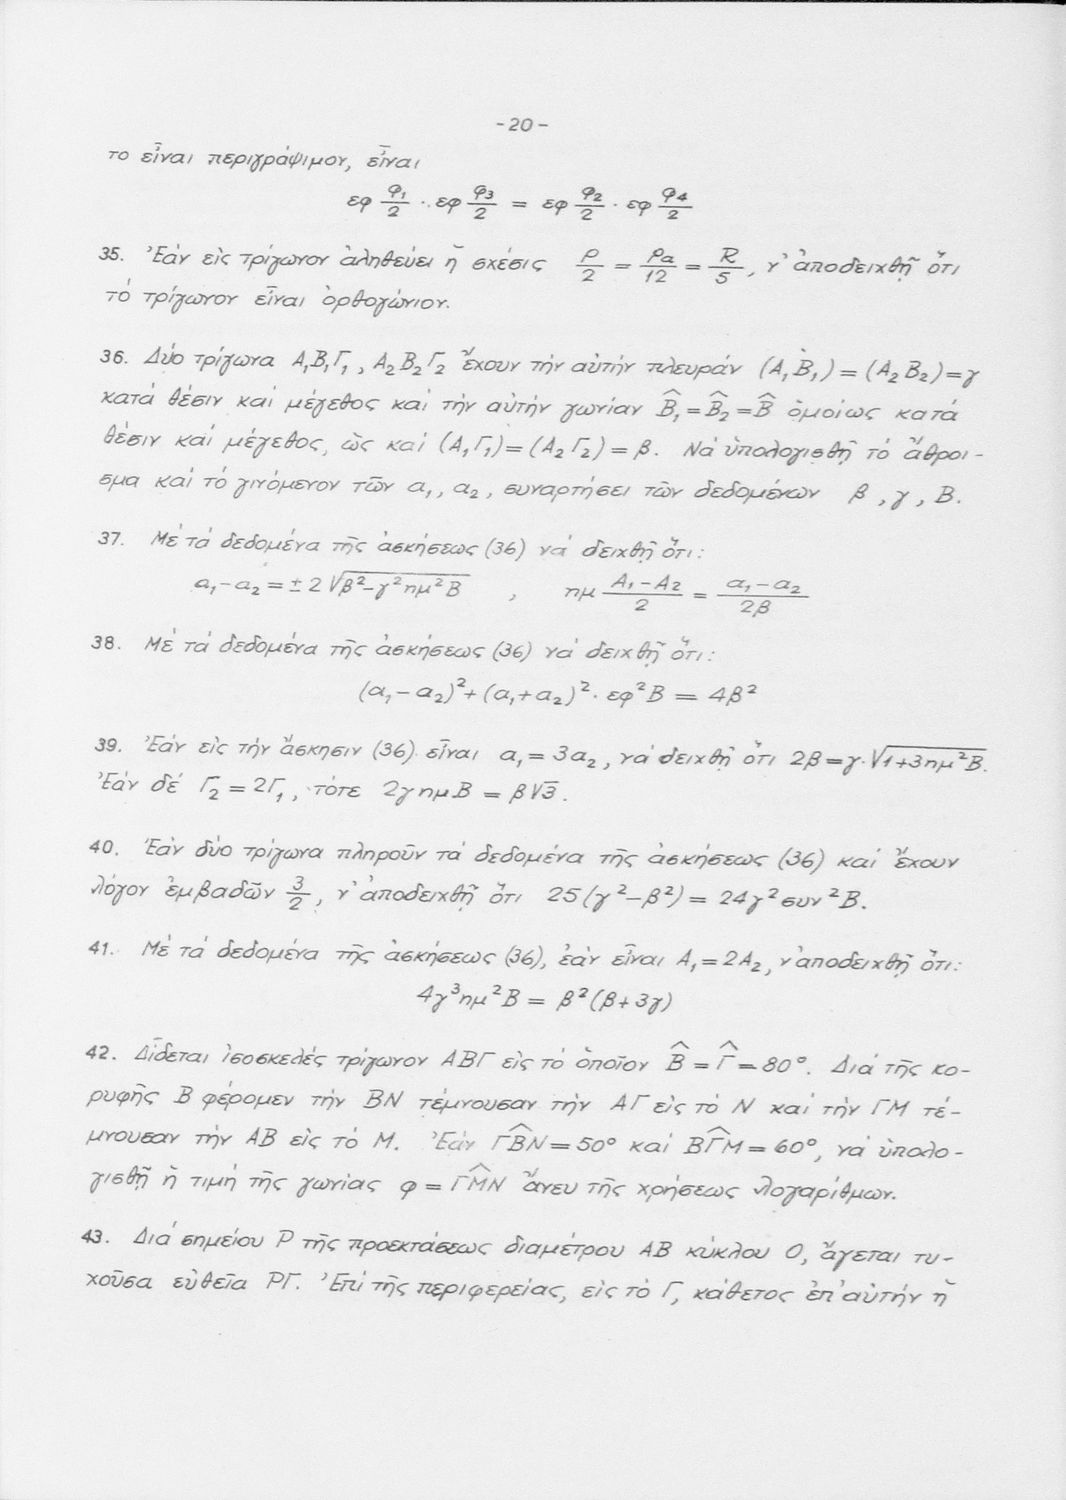 -20-
το εἶναι περιγράψιμον, εἶναι
εφ φ₁/2 · εφ φ₃/2 = εφ φ₂/2 · εφ φ₄/2
35. Ἐάν εἰς τρίγωνον ἀληθεύει ἡ σχέσις ρ/2 = ρα/12 = R/5, ν' ἀποδειχθῇ ὅτι
τό τρίγωνον εἶναι ὀρθογώνιον.
36. Δύο τρίγωνα Α₁Β₁Γ₁, Α₂Β₂Γ₂ ἔχουν τήν αὐτήν πλευράν (Α₁Β₁) = (Α₂Β₂) = γ
κατά θέσιν καί μέγεθος καί τήν αὐτήν γωνίαν B̂₁ = B̂₂ = B̂ ὁμοίως κατά
θέσιν καί μέγεθος, ὡς καί (Α₁Γ₁) = (Α₂Γ₂) = β. Νά ὑπολογισθῇ τό ἄθροι-
σμα καί τό γινόμενον τῶν α₁, α₂, συναρτήσει τῶν δεδομένων β, γ, Β.
37. Μέ τά δεδομένα τῆς ἀσκήσεως (36) νά δειχθῇ ὅτι:
α₁-α₂ = ±2√(β²-γ²ημ²Β) , ημ (Α₁-Α₂)/2 = (α₁-α₂)/2β
38. Μέ τά δεδομένα τῆς ἀσκήσεως (36) νά δειχθῇ ὅτι:
(α₁-α₂)² + (α₁+α₂)² · εφ²Β = 4β²
39. Ἐάν εἰς τήν ἄσκησιν (36) εἶναι α₁ = 3α₂, νά δειχθῇ ὅτι 2β = γ·√(1+3ημ²Β).
Ἐάν δέ Γ₂ = 2Γ₁, τότε 2γημΒ = β√3.
40. Ἐάν δύο τρίγωνα πληροῦν τά δεδομένα τῆς ἀσκήσεως (36) καί ἔχουν
λόγον ἐμβαδῶν 3/2, ν' ἀποδειχθῇ ὅτι 25(γ²-β²) = 24γ²συν²Β.
41. Μέ τά δεδομένα τῆς ἀσκήσεως (36), ἐάν εἶναι Α₁ = 2Α₂, ν' ἀποδειχθῇ ὅτι:
4γ³ημ²Β = β²(β+3γ)
42. Δίδεται ἰσοσκελές τρίγωνον ΑΒΓ εἰς τό ὁποῖον B̂ = Γ̂ = 80°. Διά τῆς κο-
ρυφῆς Β φέρομεν τήν ΒΝ τέμνουσαν τήν ΑΓ εἰς τό Ν καί τήν ΓΜ τέ-
μνουσαν τήν ΑΒ εἰς τό Μ. Ἐάν ΓB̂Ν = 50° καί ΒΓ̂Μ = 60°, νά ὑπολο-
γισθῇ ἡ τιμή τῆς γωνίας φ = ΓM̂Ν ἄνευ τῆς χρήσεως λογαρίθμων.
43. Διά σημείου Ρ τῆς προεκτάσεως διαμέτρου ΑΒ κύκλου Ο, ἄγεται τυ-
χοῦσα εὐθεῖα ΡΓ. Ἐπί τῆς περιφερείας, εἰς τό Γ, κάθετος ἐπ' αὐτήν ἡ